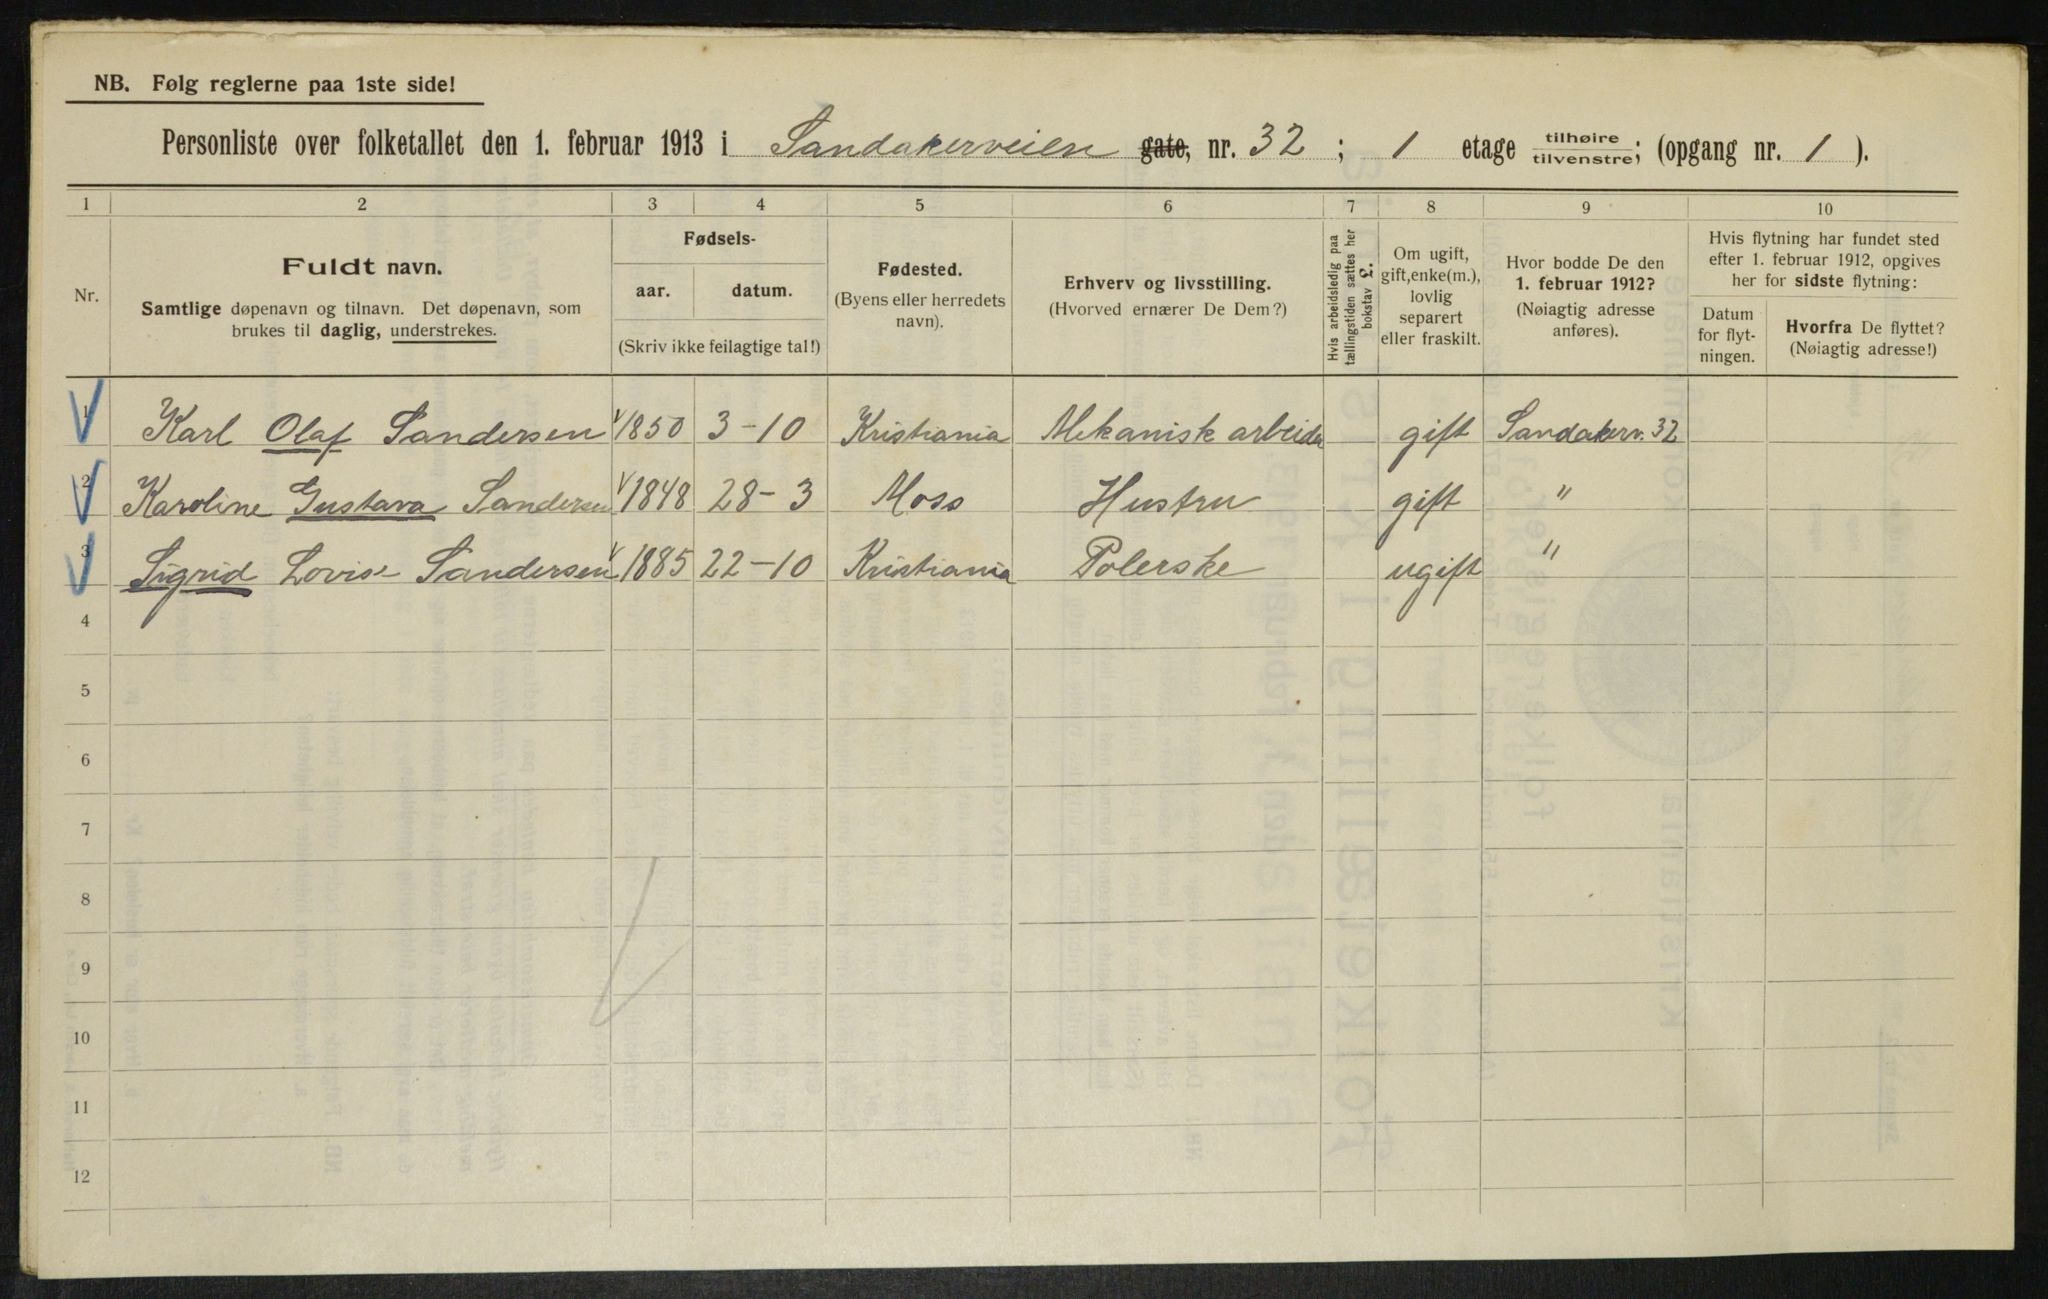 NB. Følg reglerne paa 1ste side!
Personliste over folketallet den 1. februar 1913 i Sandakerveien gate, nr. 32 ; 1 etage tilhøire tilvenstre; (opgang nr. 1 ).
1 2 3 4 5 6 7 8 9 10
Nr.
Fuldt navn.
Samtlige døpenavn og tilnavn. Det døpenavn, som
brukes til daglig, understrekes.
Fødsels-
aar. datum.
(Skriv ikke feilagtige tal!)
Fødested.
(Byens eller herredets
navn).
Erhverv og livsstilling.
(Hvorved ernærer De Dem?)
Hvis arbeidsledig paa
tællingstiden sættes her
bokstav L.
Om ugift,
gift, enke(m.),
lovlig
separert
eller fraskilt.
Hvor bodde De den
1. februar 1912?
(Nøiagtig adresse
anføres).
Hvis flytning har fundet sted
efter 1. februar 1912, opgives
her for sidste flytning:
Datum
for flyt-
ningen.
Hvorfra De flyttet?
(Nøiagtig adresse!)
1 Karl Olaf Sandersen 1850 3-10 Kristiania Mekanisk arbeider gift Sandakerv. 32
2 Karoline Gustava Sandersen 1848 28-3 Moss Hustru gift "
3 Sigrid Lovise Sandersen 1885 22-10 Kristiania Polerske ugift "
4
5
6
7
8
9
10
11
12